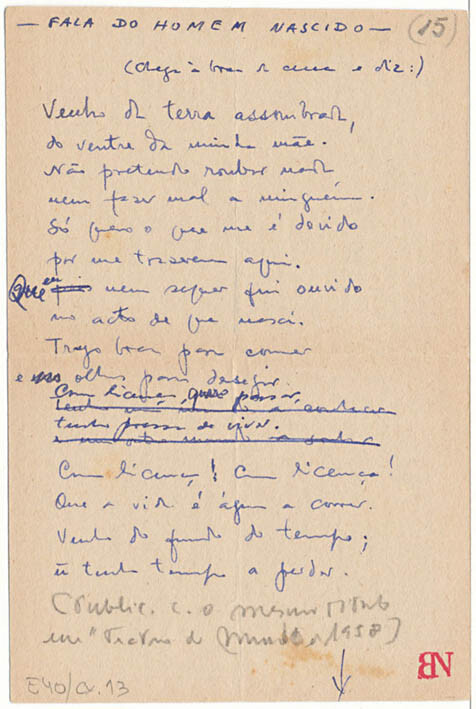 — FALA DO HOMEM NASCIDO —
(15)
(Chega à boca de cena e diz:)
Venho da terra assombrada,
do ventre da minha mãe.
Não pretendo roubar nada
nem fazer mal a ninguém.
Só quero o que me é devido
por me trazerem aqui.
Que eu nem sequer fui ouvido
no acto de que nasci.
Trago boca para comer
e olhos para desejar.
Com licença, quero passar,
tenho pressa de viver.
Com licença! Com licença!
Que a vida é água a correr.
Venho do fundo do tempo;
não tenho tempo a perder.
(Public. c. o mesmo título
em "Teatro do Mundo", 1958)
BN
E40/cx. 13